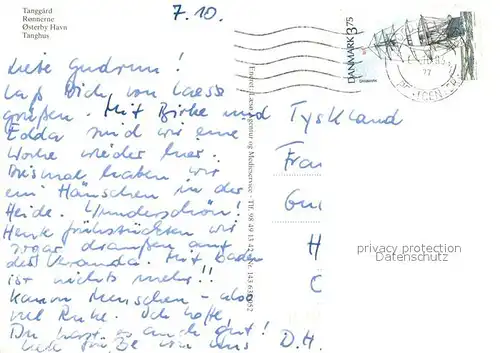 Tanggård
Rønnerne
Østerby Havn
Tanghus
7.10.
DANMARK 3.75
Liebe Gudrun!
Laß Dich von Laesø
grüßen. Mit Birke und
Edda sind wir eine
Woche wieder hier.
Diesmal haben wir
ein Häuschen in der
Heide. Wunderschön!
Heute frühstückten wir
sogar draußen auf
der Veranda. Mit baden
ist nichts mehr!!
Kaum Menschen – also
viel Ruhe. Ich hoffe,
Du hast es auch gut!
von uns
D.H
Tyskland
Frau
Gu
H
privacy protection
Datenschutz